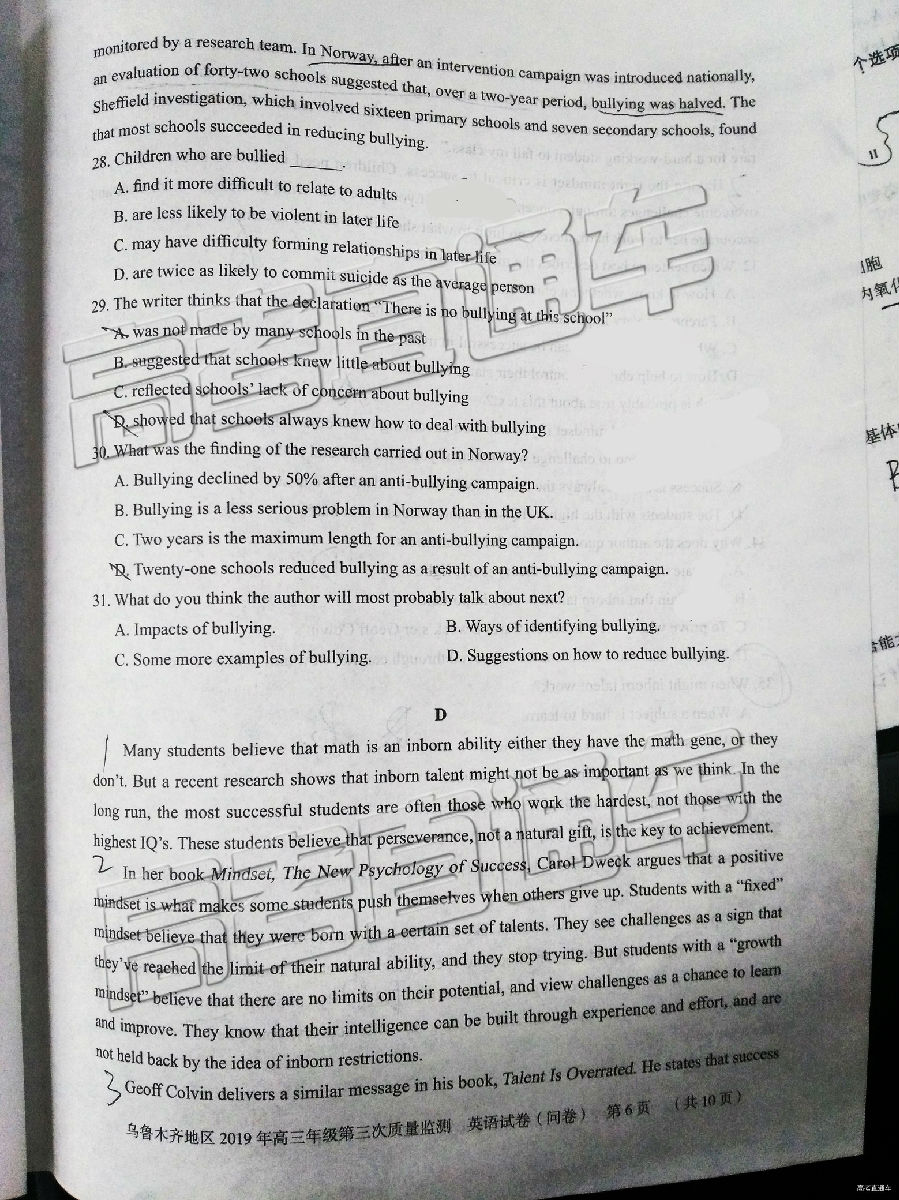 monitored by a research team. In Norway, after an intervention campaign was introduced nationally,
an evaluation of forty-two schools suggested that, over a two-year period, bullying was halved. The
Sheffield investigation, which involved sixteen primary schools and seven secondary schools, found
that most schools succeeded in reducing bullying.
28. Children who are bullied ______.
A. find it more difficult to relate to adults
B. are less likely to be violent in later life
C. may have difficulty forming relationships in later life
D. are twice as likely to commit suicide as the average person
29. The writer thinks that the declaration "There is no bullying at this school"
A. was not made by many schools in the past
B. suggested that schools knew little about bullying
C. reflected schools' lack of concern about bullying
D. showed that schools always knew how to deal with bullying
30. What was the finding of the research carried out in Norway?
A. Bullying declined by 50% after an anti-bullying campaign.
B. Bullying is a less serious problem in Norway than in the UK.
C. Two years is the maximum length for an anti-bullying campaign.
D. Twenty-one schools reduced bullying as a result of an anti-bullying campaign.
31. What do you think the author will most probably talk about next?
A. Impacts of bullying. B. Ways of identifying bullying.
C. Some more examples of bullying. D. Suggestions on how to reduce bullying.
D
1 Many students believe that math is an inborn ability either they have the math gene, or they
don't. But a recent research shows that inborn talent might not be as important as we think. In the
long run, the most successful students are often those who work the hardest, not those with the
highest IQ's. These students believe that perseverance, not a natural gift, is the key to achievement.
2 In her book Mindset, The New Psychology of Success, Carol Dweck argues that a positive
mindset is what makes some students push themselves when others give up. Students with a "fixed"
mindset believe that they were born with a certain set of talents. They see challenges as a sign that
they've reached the limit of their natural ability, and they stop trying. But students with a "growth
mindset" believe that there are no limits on their potential, and view challenges as a chance to learn
and improve. They know that their intelligence can be built through experience and effort, and are
not held back by the idea of inborn restrictions.
3 Geoff Colvin delivers a similar message in his book, Talent Is Overrated. He states that success
乌鲁木齐地区 2019 年高三年级第三次质量监测 英语试卷（问卷） 第 6 页 （共 10 页）
个选项
11
胞
内氧化
基体
B
高考直通车
高考直通车
高考直通车